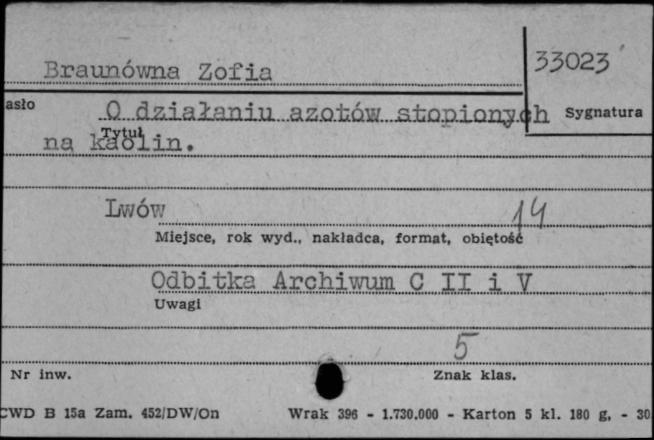 Braunówna Zofia
33023
asło
O działaniu azotów stopionych
Sygnatura
Tytuł
na kaolin.
Lwów
14
Miejsce, rok wyd., nakładca, format, obiętość
Odbitka Archiwum C II i V
Uwagi
5
Nr inw.
Znak klas.
CWD B 15a Zam. 452/DW/On Wrak 396 - 1.730.000 - Karton 5 kl. 180 g, - 30